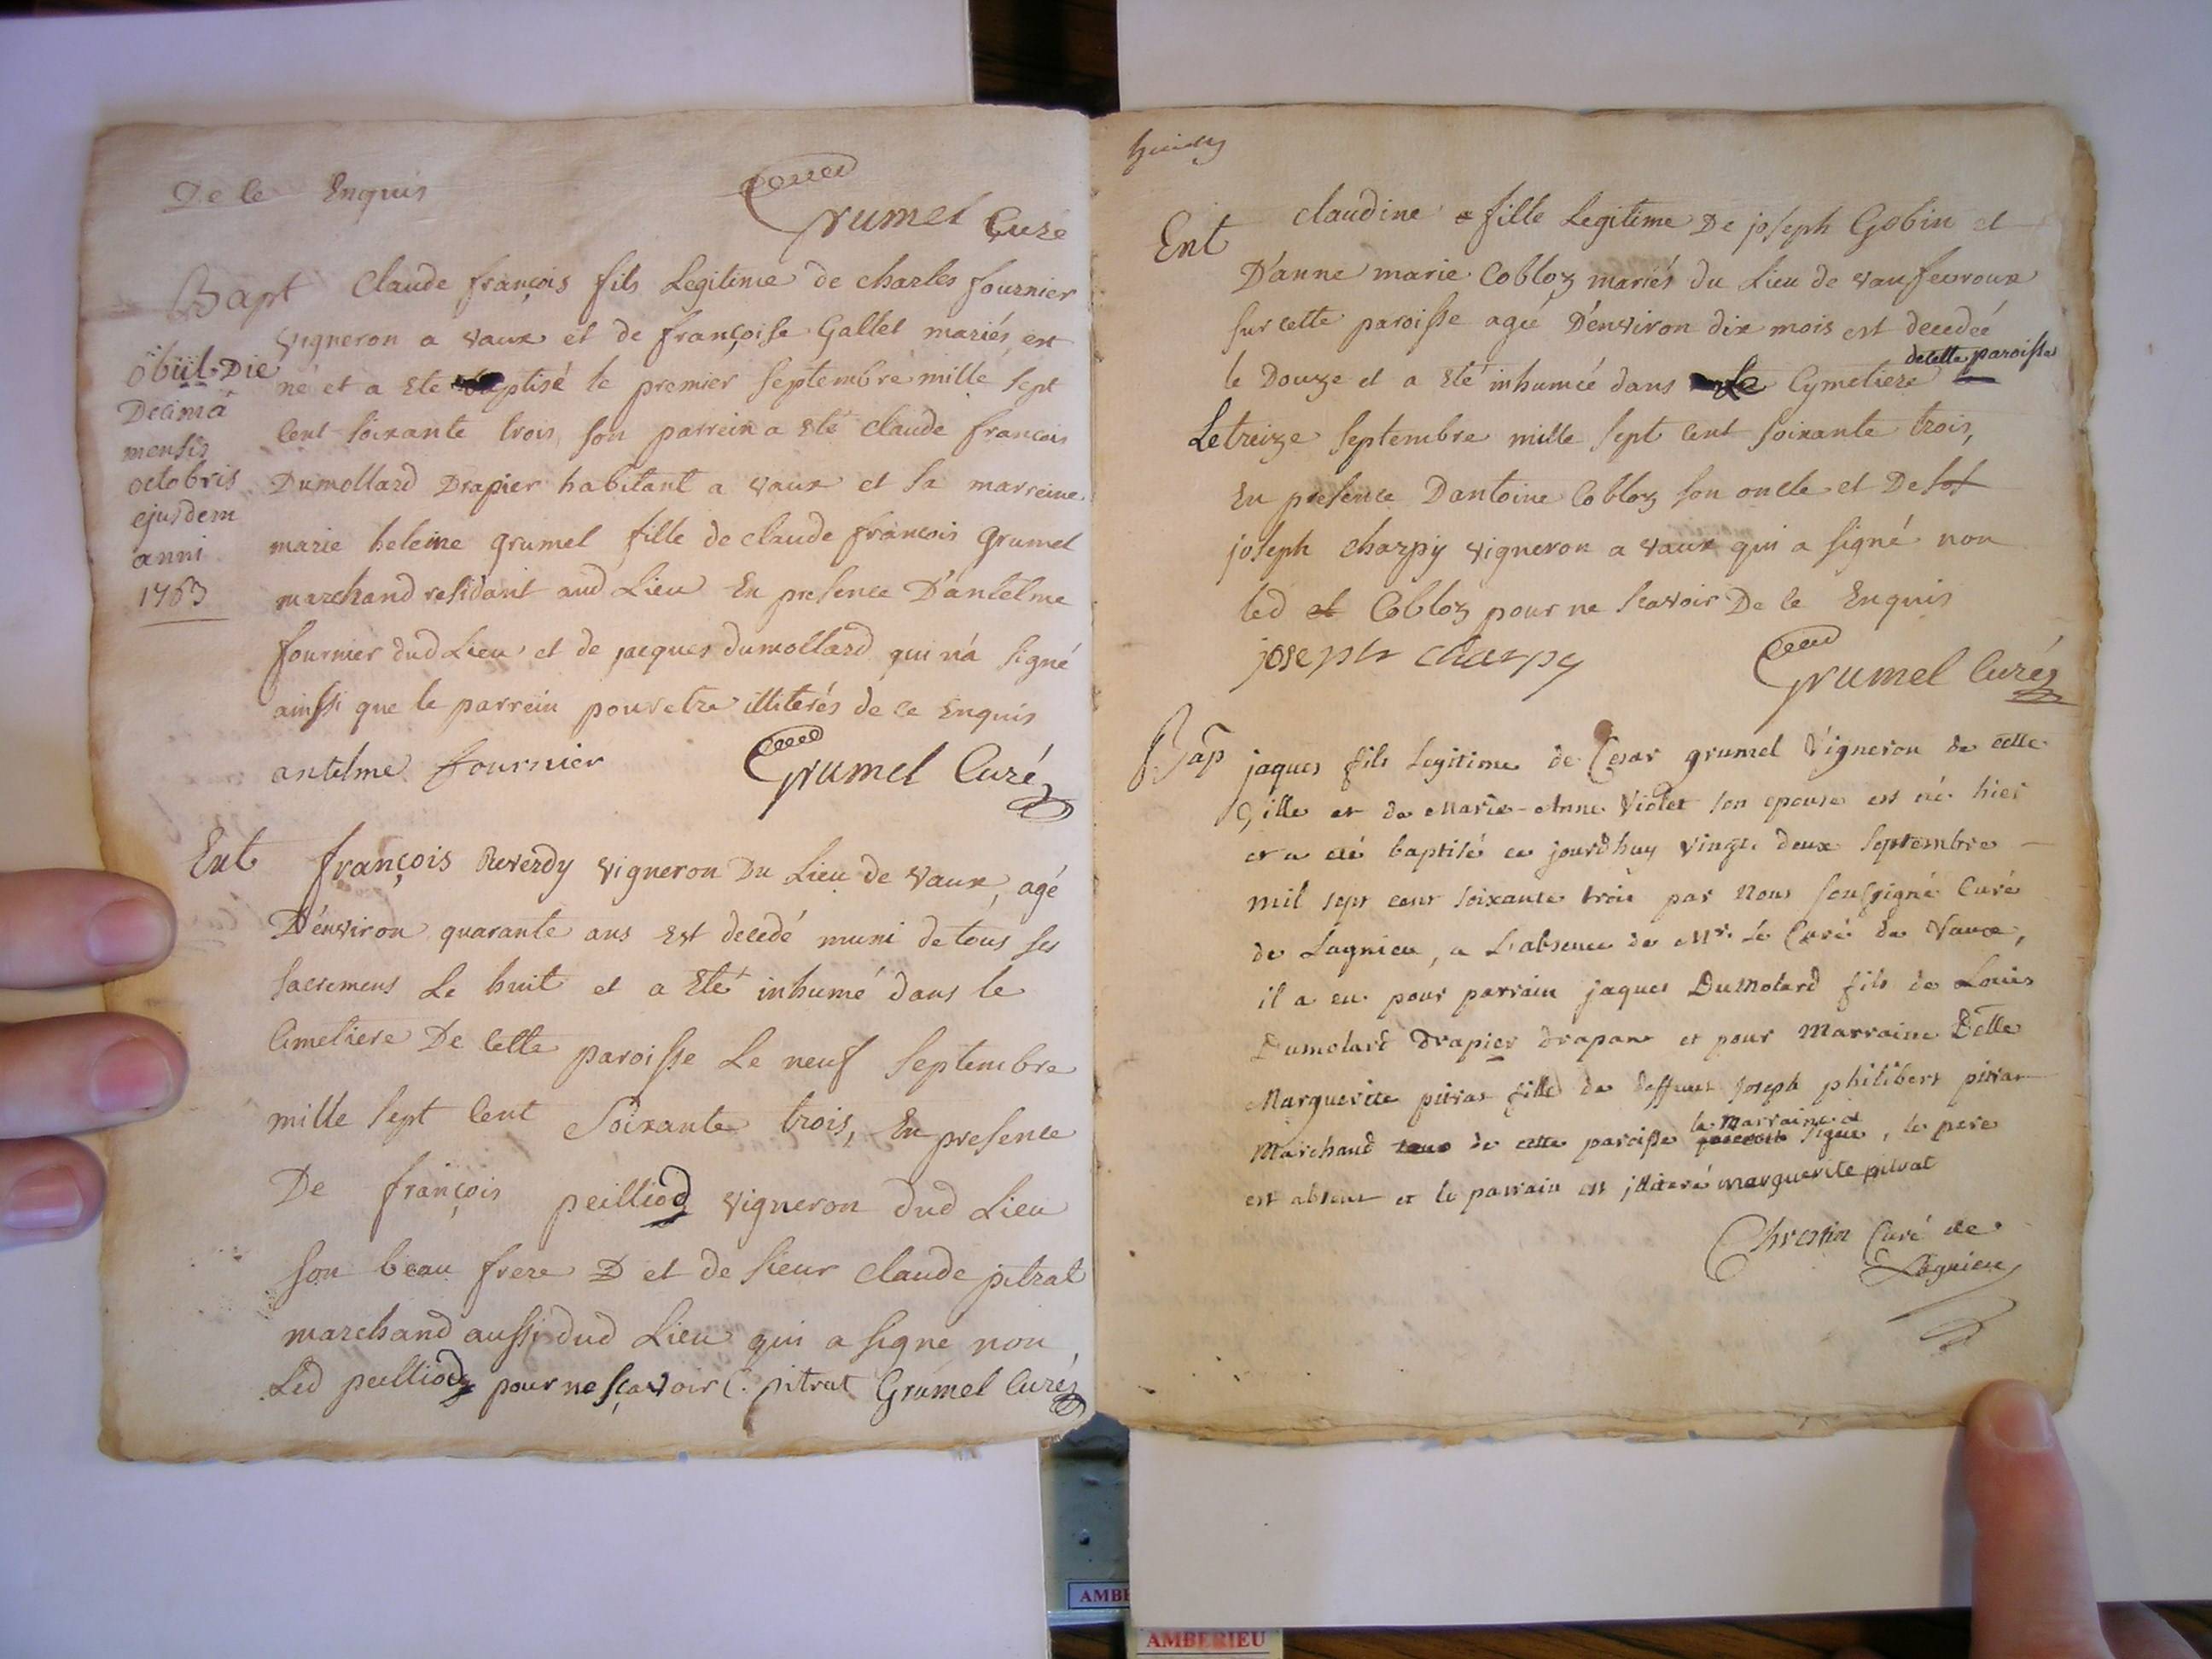 De ce Enquis
Grumel Curé
Bapt Claude françois fils Legitime de charles fournier
vigneron a vaux et de françoise Gallet mariés est
né et a ete baptisé le premier septembre mille sept
Cent soixante trois, son parrein a eté claude francois
Dumollard Drapier habitant a vaux et sa marreine
marie heleine grumel fille de claude francois grumel
marchand residant aud Lieu En presence D'antelme
fournier dud Lieu et de jacques dumollard qui n'a signé
ainssi que le parrein pour etre illiterés de ce Enquis
antelme fournier Grumel Curé
obiit Die
Decima
mensis
octobris
ejusdem
anni
1763
Ent françois Reverdy vigneron Du Lieu de vaux, agé
D'environ quarante ans Est decedé muni de tous ses
sacremens Le huit et a Eté inhumé dans le
Cimetiere De Cette paroisse Le neuf septembre
mille sept Cent soixante trois, En presence
De françois peilliod vigneron dud Lieu
son beau frere D et de sieur claude pitrat
marchand aussi dud Lieu qui a signe non
Led peilliod pour ne sçavoir C. pitrat Grumel Curé
Ent claudine fille Legitime De joseph Gobin et
D'anne marie Cobloz mariés du Lieu de vaufevroux
sur cette paroisse ageé D'environ dix mois est decedée
le Douze et a eté inhumée dans Le Cymetiere de cette paroisse
Le treize septembre mille sept cent soixante trois,
En presence D'antoine Cobloz son oncle et De
joseph charpy vigneron a vaux qui a signé non
led et Cobloz pour ne scavoir De ce Enquis
joseph charpy Grumel Curé
Bap jaques fils legitime de Cesar grumel Vigneron de cette
Ville et de Marie-Anne Violet son epouse est né hier
et a eté baptisé ce jourd'huy vingt deux septembre
mil sept cent soixante trois par Nous soussigné Curé
de Lagnieu, a L'absence de Mr. Le Curé de Vaux,
il a eu pour parrain jaques Dumolard fils de Louis
Dumolard Drapier drapant et pour Marraine Delle
Marguerite pitrat fille de deffunt joseph philibert pitrat
Marchand de cette paroisse la Marraine a signé, le pere
est absent et le parrain est jlliteré marguerite pitrat
Chrestin Curé de
Lagnieu
AMBE
AMBERIEU